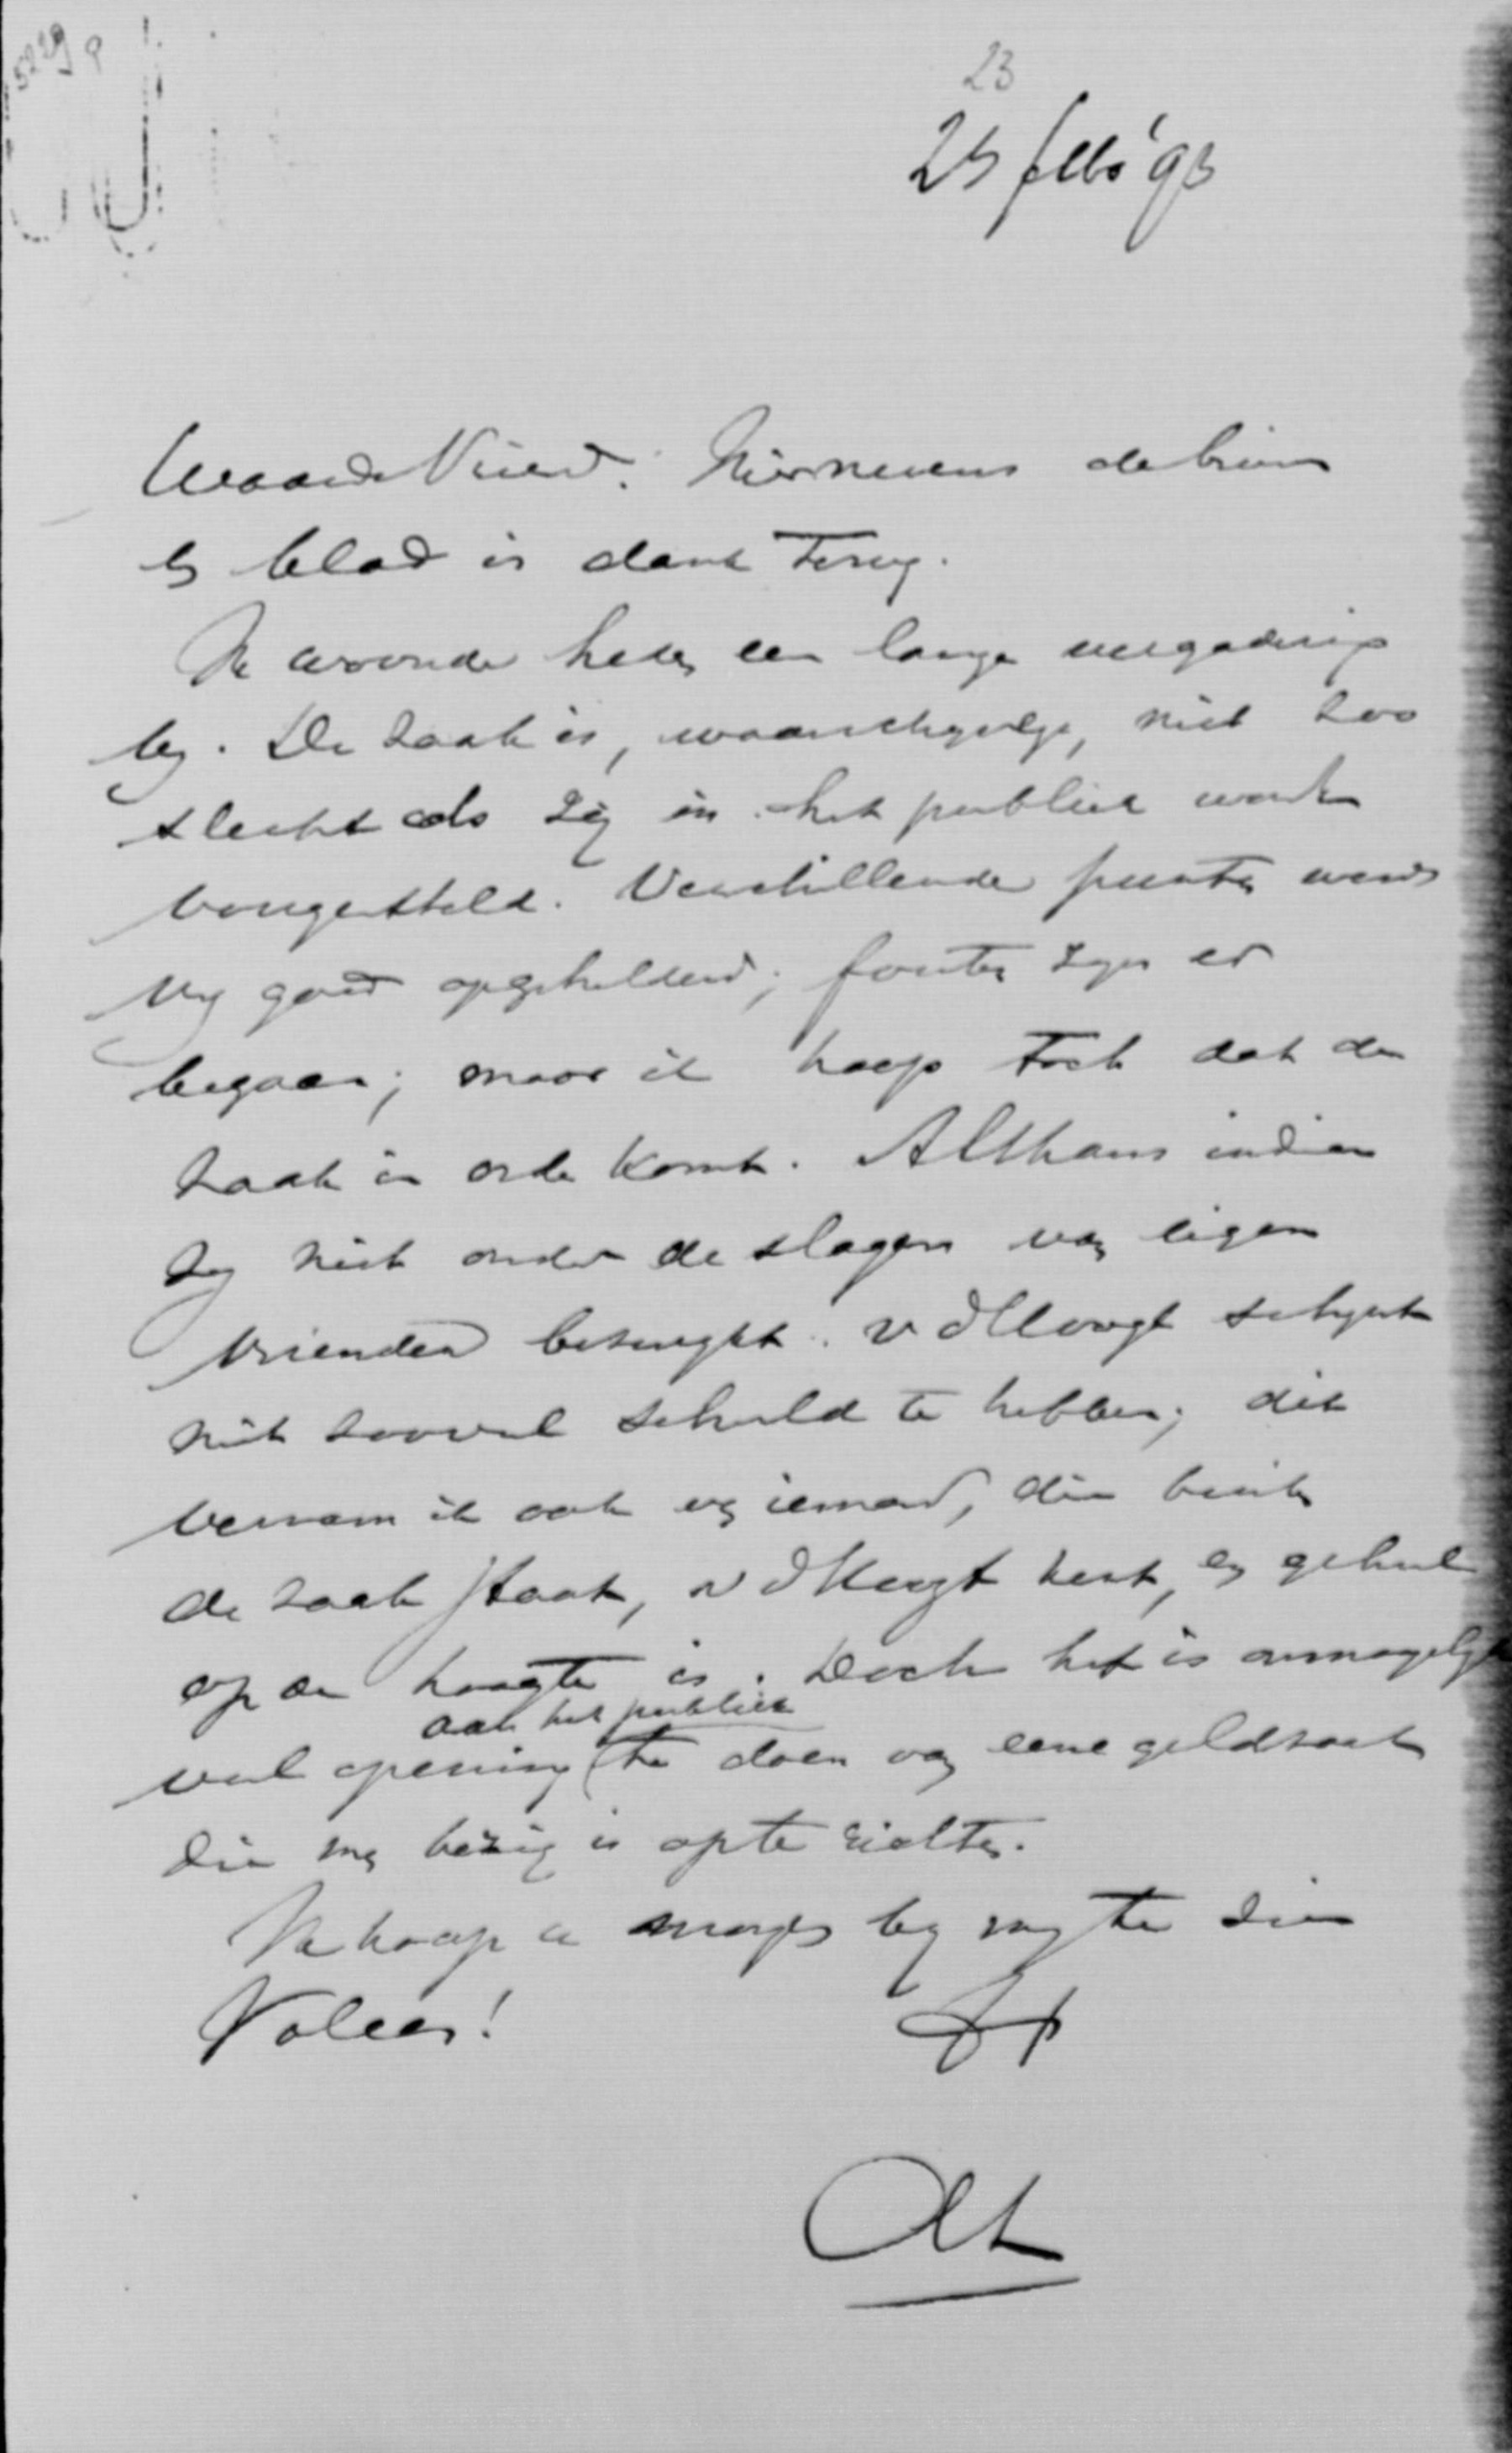 5229 p
23
25 febr '93
Waarde Vriend. Hiernevens de brieven
en blad in dank terug.
Ik woonde heden een lange vergadering
bij. De zaak is, waarschijnlijk, niet zoo
slecht als zij in het publiek wordt
voorgesteld. Verschillende punten werden
mij goed opgehelderd; fouten zijn er
begaan; maar ik hoop toch dat de
zaak in orde komt. Althans indien
zij niet onder de slagen van eigen
vrienden bezwijkt. v d Hoogt schijnt
niet zooveel schuld te hebben; dit
vernam ik ook van iemand, die buiten
de zaak staat, v d Hoogt kent, en geheel
op de hoogte is. Doch het is onmogelijk
aan het publiek
veel opening te doen van eene geldzaak
die men bezig is op te richten.
Ik hoop u morgen bij mij te zien
Valeas! tt